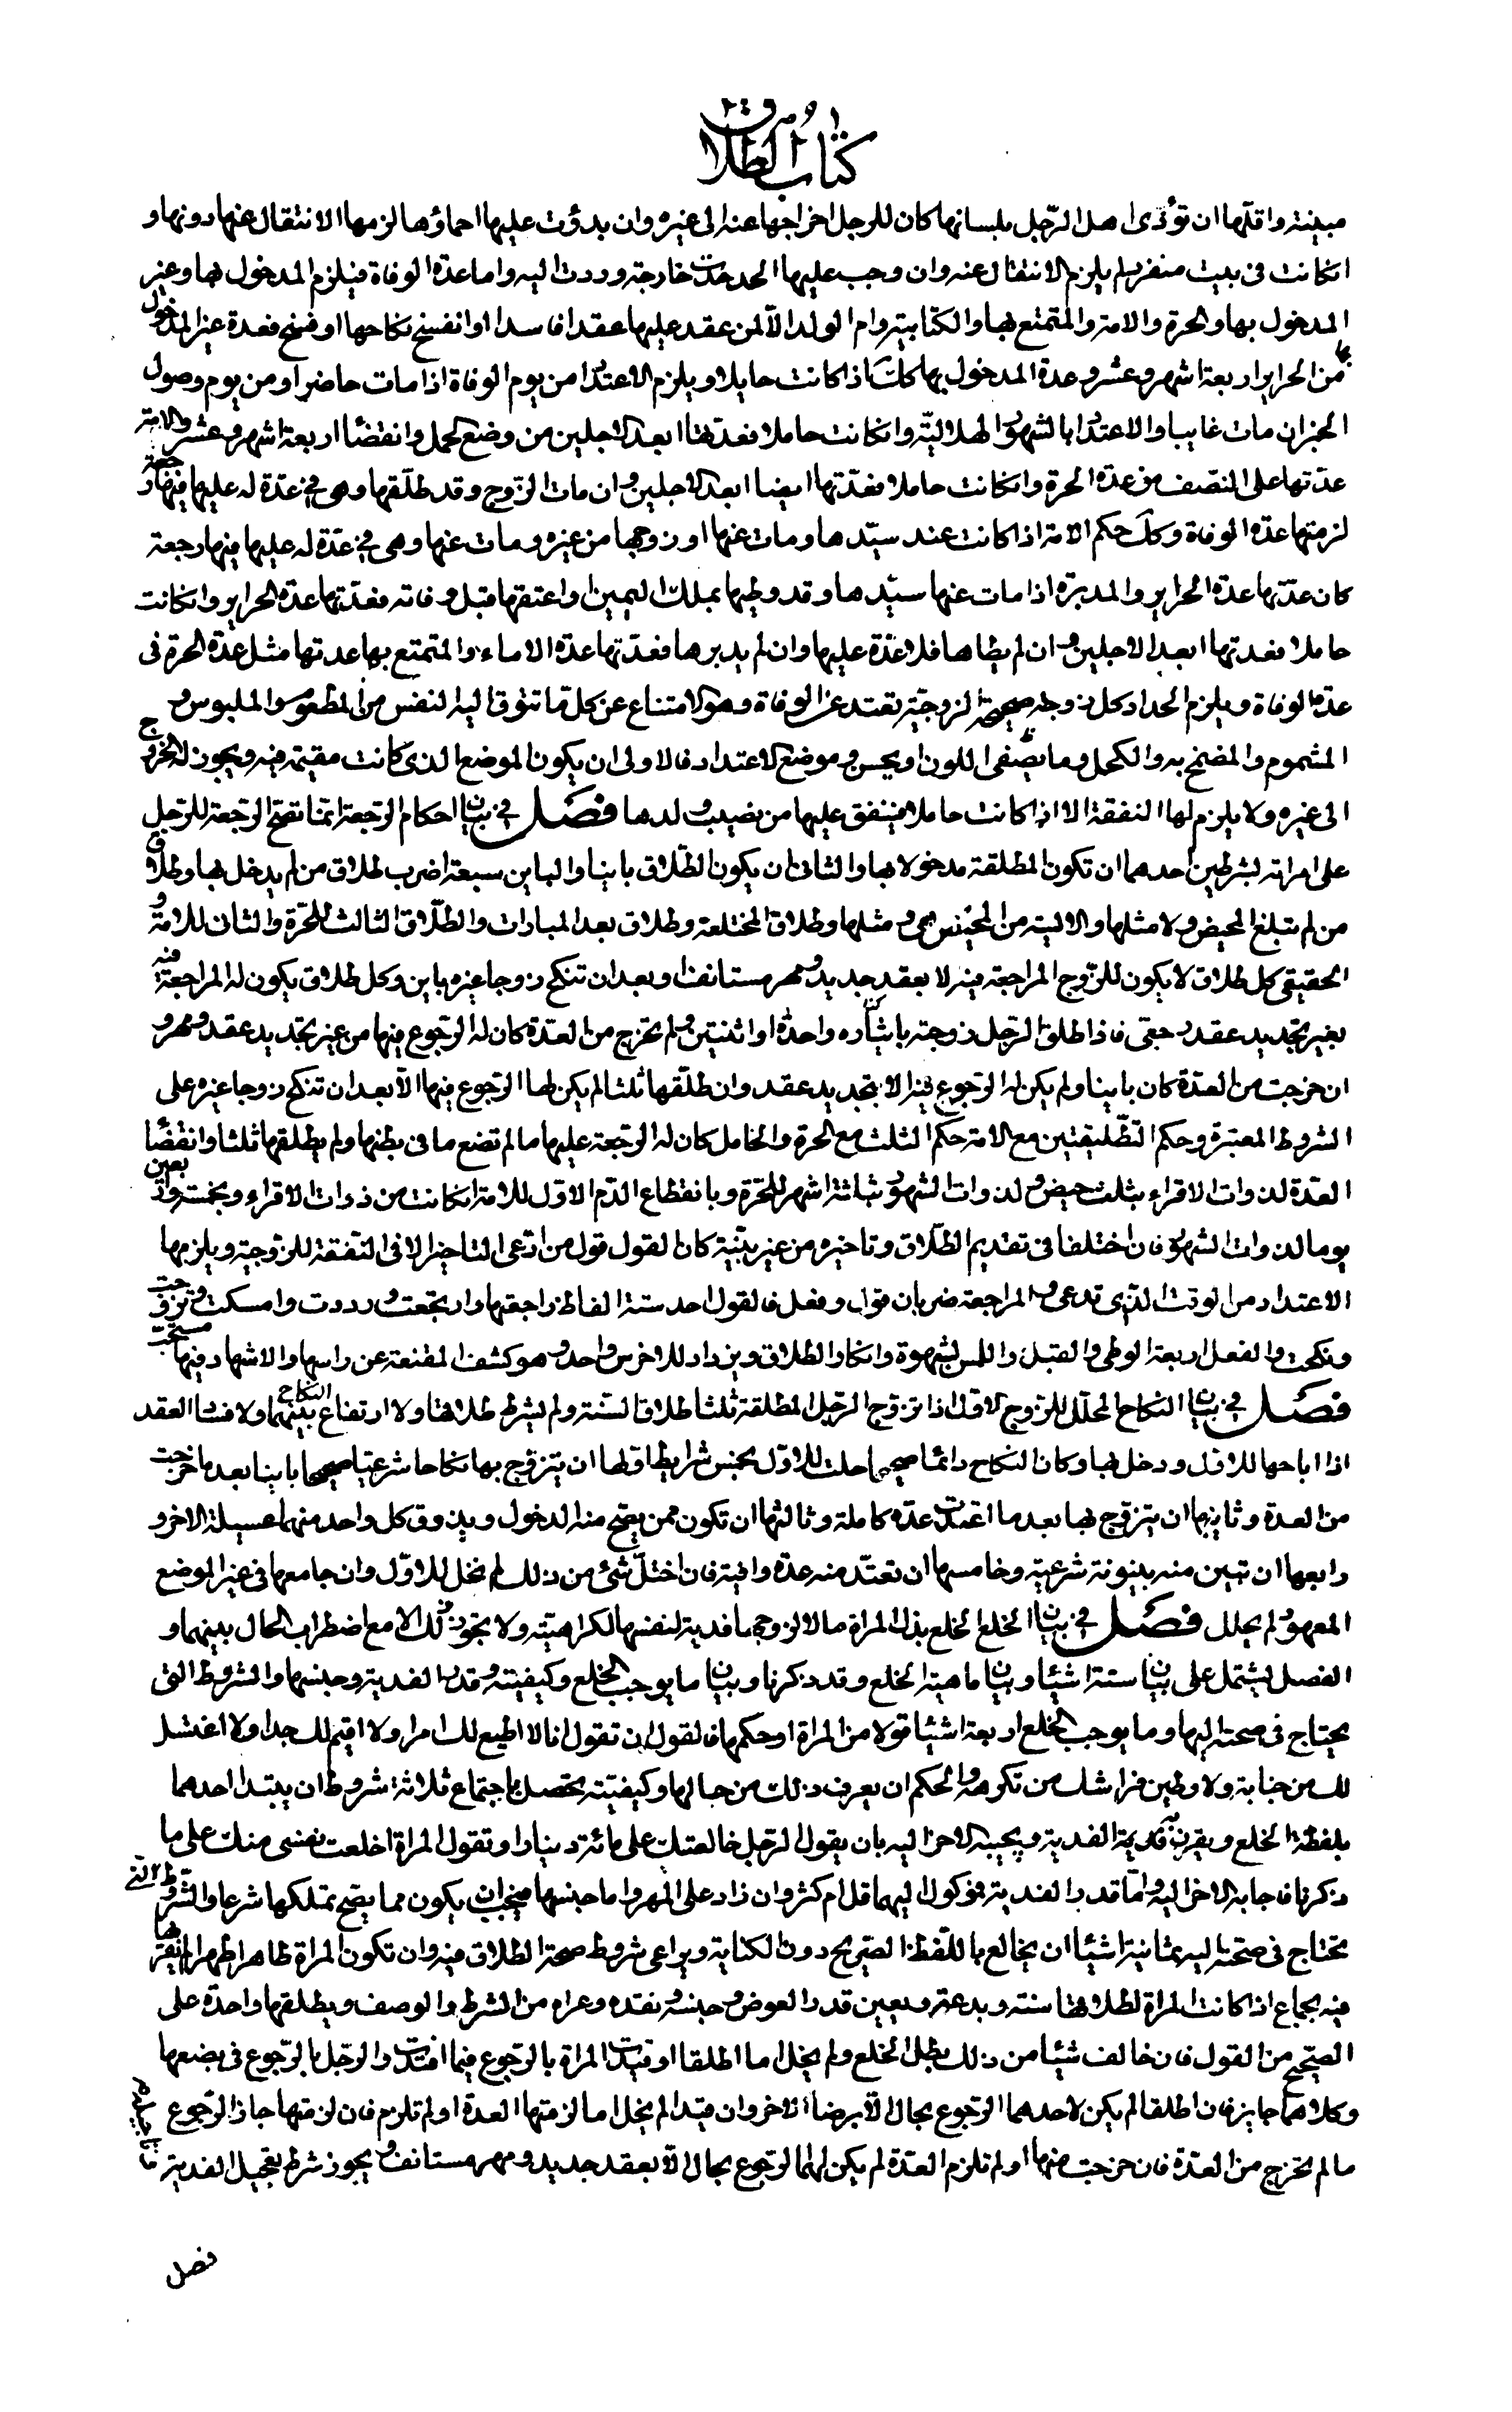 كتاب الطلاق
مبينة واقلها ان تؤذى اهل الرّجل بلسانها كان للرجل اخراجها عنه الى غيره وان بدؤت عليها احماؤها لزمها الانتقال عنها دونها و
انكانت فى بيت منفرد لم يلزم الانتقال عنه وان وجب عليها الحد حدت خارجة وردت اليه واما عدة الوفاة فيلزم المدخول بها وغير
المدخول بها والحرة والامة والمتمتع بها والكتابية وام الولد الّا لمن عقد عليها عقدا فاسدا او انفسخ نكاحها او فسخ فعدة غير المدخول
بها من الحراير اربعة اشهر وعشر وعدة المدخول بها كك اذا كانت حايلا ويلزم الاعتداد من يوم الوفاة اذا مات حاضرا ومن يوم وصول
الخبر ان مات غايبا والاعتداد بالشهور الهلاليّة وانكانت حاملا فعدتها ابعد الاجلين من وضع الحمل وانقضاء اربعة اشهر وعشر والامة
عدتها على النصف من عدة الحرة وانكانت حاملا فعدّتها ايضا ابعد الاجلين وان مات الزوج وقد طلّقها وهى فى عدة له عليها فيها رجعة
لزمتها عدّة الوفاة وكك حكم الامة اذا كانت عند سيّدها ومات عنها او زوجها من غيره ومات عنها وهى فى عدّة له عليها فيها رجعة
كان عدّتها عدة الحراير والمدبّرة اذا مات عنها سيّدها وقد وطيها بملك اليمين او اعتقها قبل وفاته فعدّتها عدة الحراير وانكانت
حاملا فعدتها ابعد الاجلين وان لم يطاها فلا عدّة عليها وان لم يدبرها فعدّتها عدّة الاماء والمتمتع بها عدتها مثل عدة الحرة فى
عدة الوفاة ويلزم الحداد كل زوجة صحيحة الزوجيّة تعتد عن الوفاة وهو الامتناع عن كل ما تتوق اليه النفس من المطعوم والملبوس و
المشموم والمضمّخ به والكحل وما يصفى اللون او يحسن وموضع الاعتداد فالاولى ان يكون الموضع الذى كانت مقيمة فيه ويجوز له الخروج
الى غيره ولا يلزم لها النفقة الا اذا كانت حاملا فينفق عليها من نصيب ولدها فصل فى بيان احكام الرّجعة انما تصحّ الرّجعة للرّجل
على امراته بشرطين احدهما ان تكون المطلقة مدخولا بها والثانى ان يكون الطّلاق باينا والباين سبعة اضرب طلاق من لم يدخل بها وطلاق
من لم يتبلغ المحيض ولا مثلها والايسة من الحيض ومثلها وطلاق المختلعة وطلاق بعد المبارات والطّلاق الثالث للحرّة والثانى للامة و
الحقيقى كل طلاق لا يكون للزّوج المراجعة فيه لا بعقد جديد ومهر مستانف او بعد ان تنكح زوجا غيره باين وكل طلاق يكون له المراجعة فيه
بغير تجديد عقد رجعى فاذا طلق الرّجل زوجته باشاره واحدة او اثنتين ولم تخرج من العدّة كان له الرّجوع فيها من غير تجديد عقد ومهر و
ان خرجت من العدّة كان باينا ولم يكن له الرّجوع فيه الا بتجديد عقد وان طلّقها ثلثا لم يكن لها الرّجوع فيها الّا بعد ان تنكح زوجا غيره على
الشروط المعتبرة وحكم التّطليقتين مع الامة حكم الثلث مع الحرة والحامل كان له الرّجعة عليها ما لم تضع ما فى بطنها ولم يطلقها ثلثا وانقضاء
العدّة لذوات الاقراء بثلث حيض ولذوات الشهور بثلثة اشهر للحرّة وبانقطاع الدّم الاوّل للامة انكانت من ذوات الاقراء وبخمسة واربعين
يوما لذوات الشهور فان اختلفا فى تقديم الطّلاق وتاخيره من غير بيّنة كان القول قول من ادّعى التاخير الا فى النّفقة للزّوجيّة ويلزمها
الاعتداد من الوقت الّذى تدعى والمراجعة ضربان قول وفعل فالقول احد ستة الفاظ راجعتها وارتجعت ورددت وامسكت وتزوّجت
ونكحت والفعل اربعة الوطى والقبلة واللمس بشهوة وانكار الطّلاق ويزداد للاخرس واحد وهو كشف المقنعة عن راسها والاشهاد فيها مستحبّ
فصل فى بيان النكاح المحلّل للزّوج الاوّل اذا تزوّج الرّجل المطلقة ثلثا طلاق السّنة ولم يشرط طلاقها ولا ارتفاع النكاح بينهما ولا فساد العقد
اذا اباحها للاوّل ودخل بها وكان النكاح دائما صحيحا حلت للاوّل بخمس شرايط اوّلها ان يتزوّج بها نكاحا شرعيّا صحيحا باينا بعد ما خرجت
من العدة وثانيها ان يتزوّج بها بعد ما اعتدّت عدّة كاملة وثالثها ان تكون ممن يصحّ منه الدخول ويذوق كل واحد منهما عسيلة الاخر و
رابعها ان تبين منه بينونة شرعيّة وخامسها ان تعتدّ منه عدّة وافية فان اختلّ شئ من ذلك لم تحل للاوّل وان جامعها فى غير الموضع
المعهود لم يحلل فصل فى بيان الخلع الخلع بذل المراة مالا لزوجها فدية لنفسها لكراهيته ولا يجوز ذلك الا مع اضطراب الحال بينهما و
الفصل يشتمل على بيان ستة اشياء وبيان ماهية الخلع وقد ذكرنا وبيان ما يوجب الخلع وكيفيته وقدر الفدية وجنسها والشروط التى
يحتاج فى صحته اليها وما يوجب الخلع اربعة اشياء قولا من المراة او حكمها فالقول ان تقول انا لا اطيع لك امرا ولا اقيم لك حدا ولا اغتسل
لك من جنابة ولاوطين فراشك من تكرهه والحكم ان يعرف ذلك من حالها وكيفيّته تحصل باجتماع ثلاثة شروط ان يبتدا احدهما
بلفظة الخلع ويقرن به قدية الفدية ويجيبه الاخر اليه بان يقول الرّجل خالعتك على مائة دينار او تقول المراة اخلعت نفسى منك على ما
ذكرنا فاجابه الاخر اليه وامّا قدر الفدية فموكول اليهما قل ام كثر وان زاد على المهر واما جنسها فيجب ان يكون مما يصحّ تملكها شرعا والشروط التى
تحتاج فى صحّته اليه ثمانية اشياء ان يخالع باللّفظ الصّريح دون الكناية ويراعى شروط صحة الطلاق فيه وان تكون المراة طاهرا طهرا لم يقربها
فيه بجماع اذا كانت المراة لطلاقها سنة وبدعة وتعيين قدر العوض وجنسه ونقده وعراه من الشرط والوصف ويطلقها واحدة على
الصّحيح من القول فان خالف شيئا من ذلك بطل الخلع ولم يخل اما اطلقا او قيدت المراة بالرّجوع فيما افتدت والرّجل بالرّجوع فى بضعها
وكلاهما جايز فان اطلقا لم يكن لاحدهما الرّجوع بحال الّا برضا الاخر وان قيدا لم يخل اما لزمتها العدة او لم تلزم فان لزمتها جاز الرّجوع
ما لم تخرج من العدّة فان خرجت منها او لم تلزم العدّة لم يكن لهما الرّجوع بحال الّا بعقد جديد ومهر مستانف ويجوز شرط تعجيل الفدية
فصل